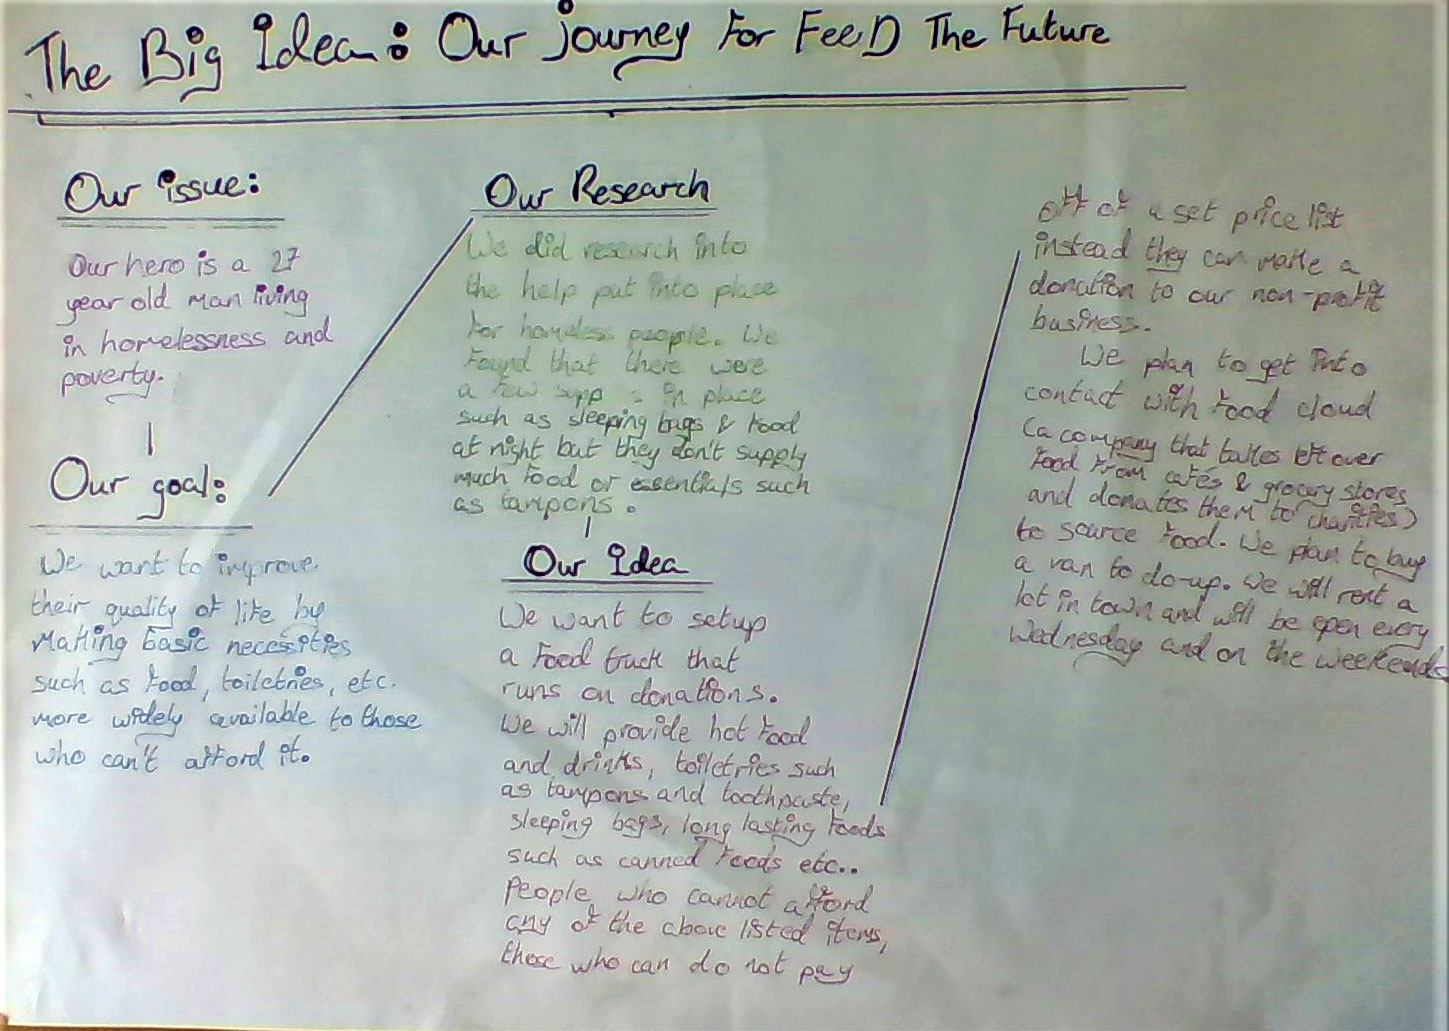 The Big Idea: Our journey For FeeD The Future
Our issue:
Our hero is a 27
year old man living
in homelessness and
poverty.
Our goal:
We want to improve
their quality of life by
making basic necessities
such as food, toiletries, etc.
more widely available to those
who can't afford it.
Our Research
We did research into
the help put into place
for homeless people. We
found that there were
a few in place
such as sleeping bags & food
at night but they don't supply
much food or essentials such
as tampons.
Our Idea
We want to setup
a food truck that
runs on donations.
We will provide hot food
and drinks, toiletries such
as tampons and toothpaste,
sleeping bags, long lasting foods
such as canned foods etc..
People who cannot afford
any of the above listed items,
those who can do not pay
off of a set price list
instead they can make a
donation to our non-profit
business.
We plan to get into
contact with food cloud
(a company that takes left over
food from cafés & grocery stores
and donates them to charities)
to source food. We plan to buy
a van to do-up. We will rent a
lot in town and will be open every
Wednesday and on the weekends.